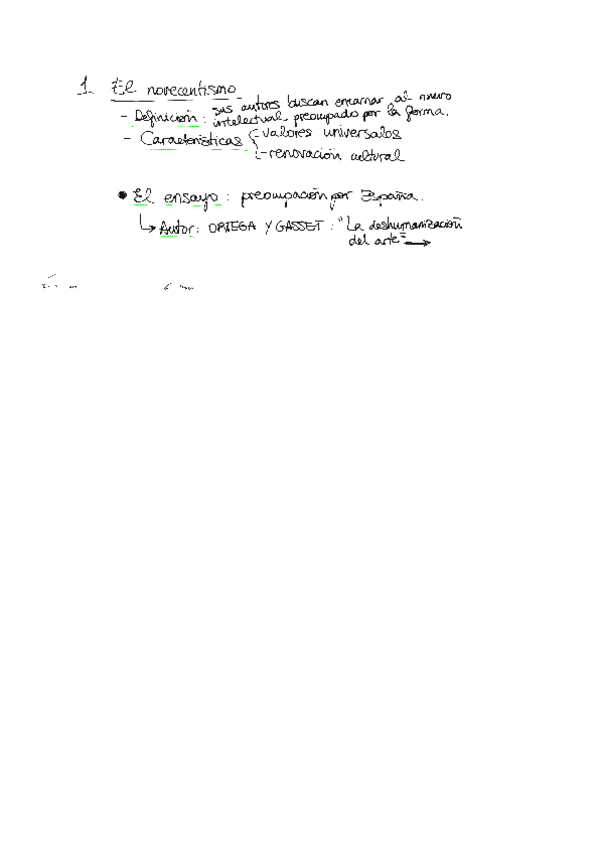 1. El novecentismo
- Definición: sus autores buscan encarnar al nuevo
intelectual preocupado por la forma.
- Características - valores universales
- renovación cultural
• El ensayo: preocupación por España.
↳ Autor: ORTEGA Y GASSET: "La deshumanización
del arte" →